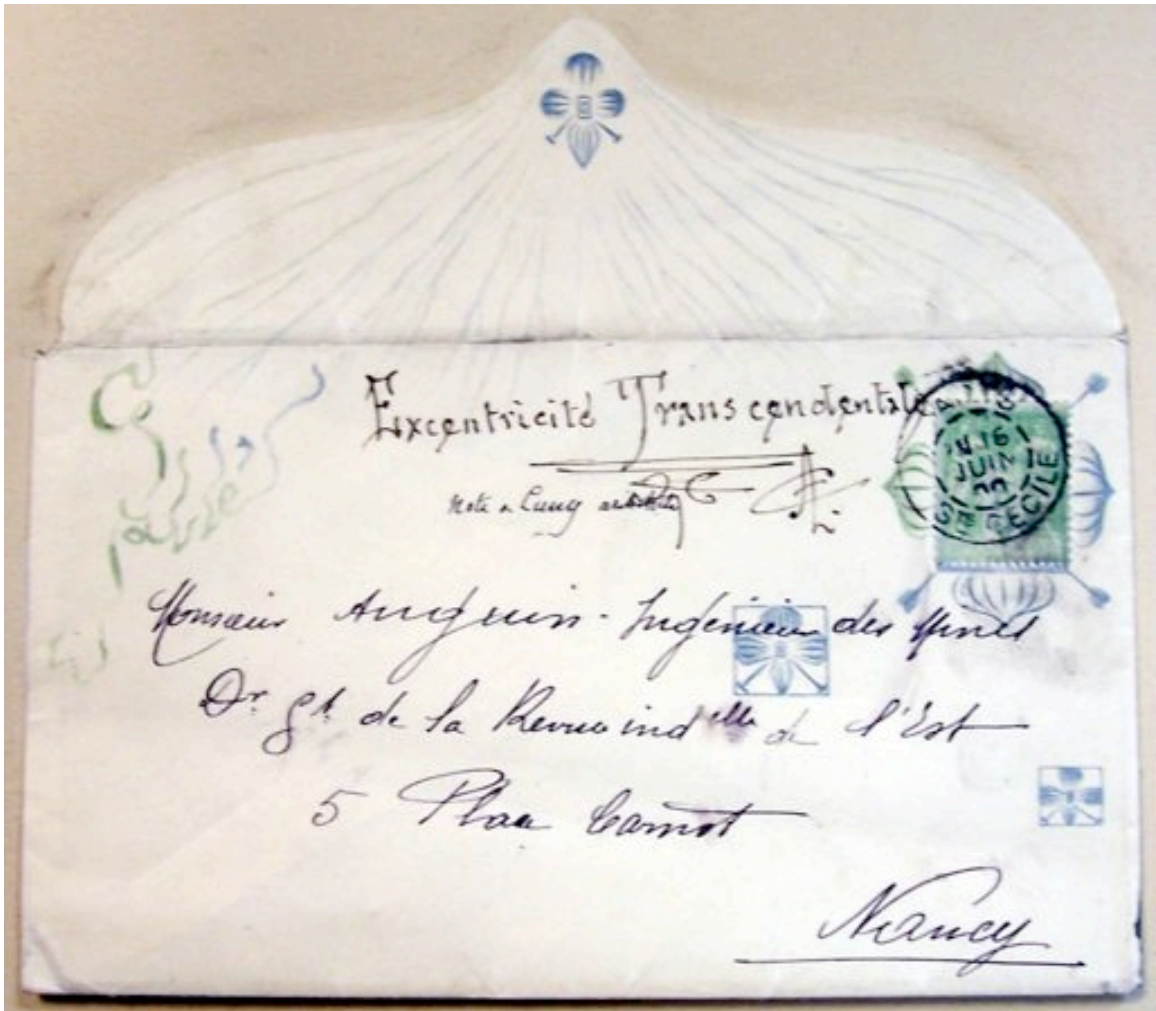 Excentricité Transcendentale
PARIS
16
JUIN
00
STE CECILE
Monsieur Anguin - Ingénieur des Mines
Dr. gt. de la Revue indelle de l'Est
5 Place Carnot
Nancy